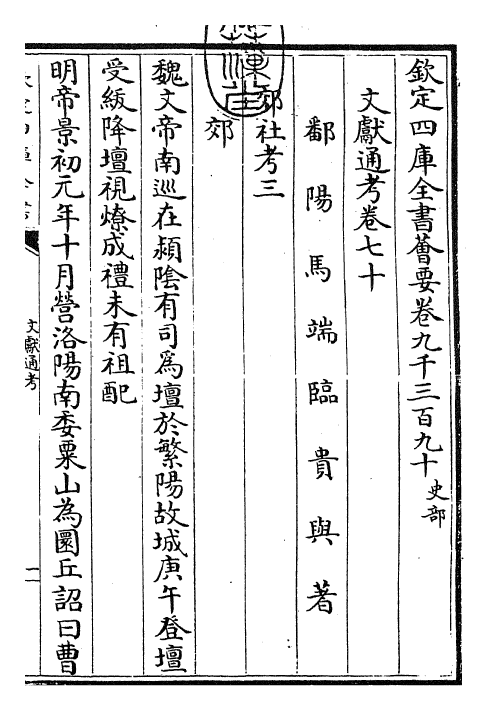 欽定四庫全書薈要卷九千三百九十史部
文獻通考卷七十
鄱陽馬端臨貴與著
郊社考三
郊
魏文帝南巡在潁陰有司爲壇於繁陽故城庚午登壇
受紱降壇視燎成禮未有祖配
明帝景初元年十月營洛陽南委粟山為圜丘詔曰曹
文獻通考